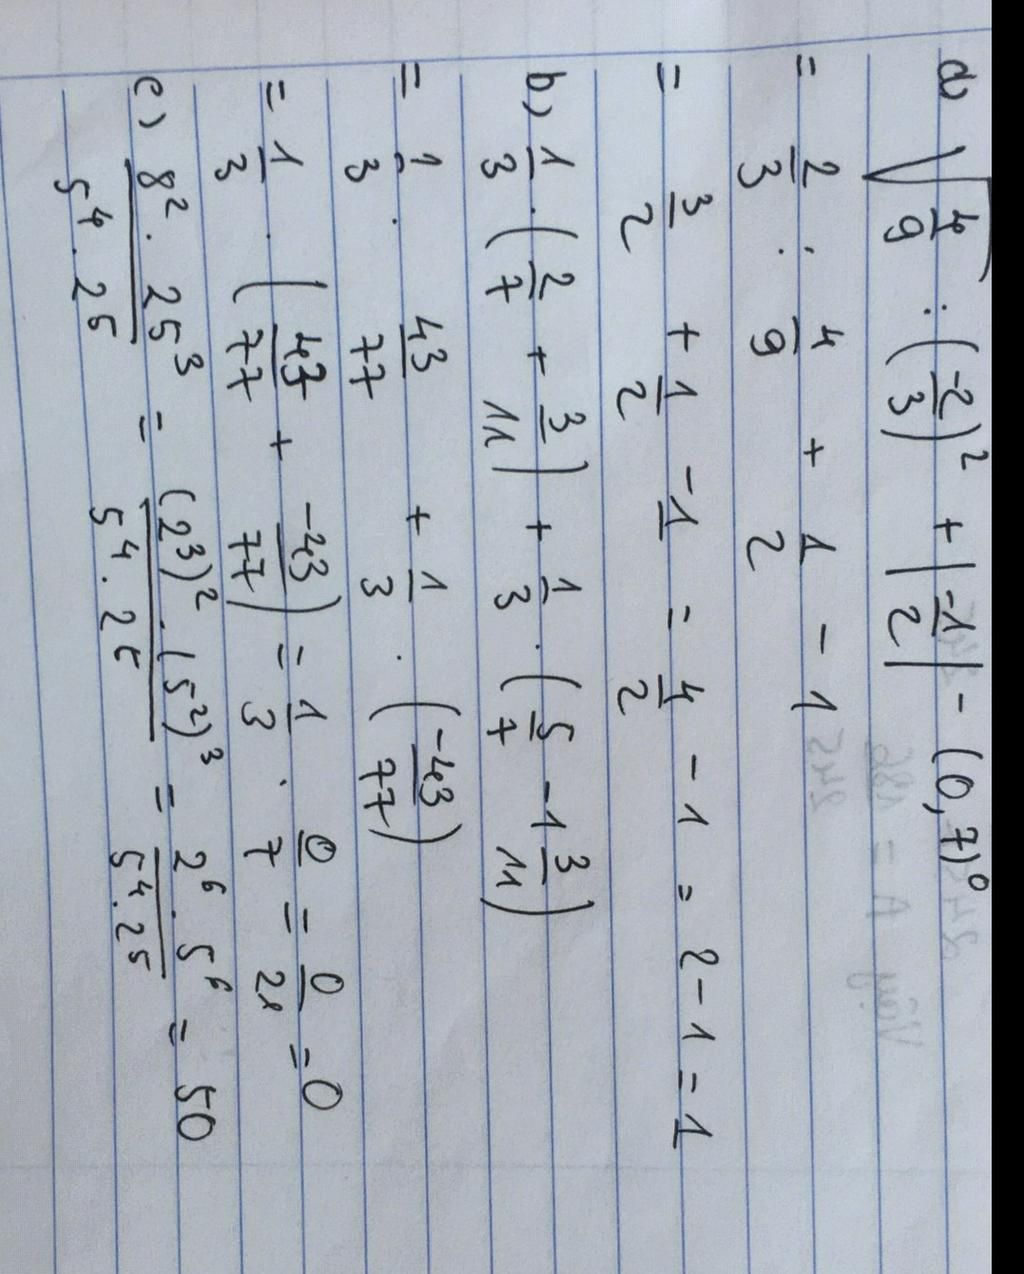 a) √(4/9) : (-2/3)² + |-1/2| - (0,7)⁰
= 2/3 : 4/9 + 1/2 - 1
= 3/2 + 1/2 - 1 = 4/2 - 1 = 2 - 1 = 1
b) 1/3 . (2/7 + 3/11) + 1/3 . (5/7 - 1 3/11)
= 1/3 . 43/77 + 1/3 . (-43/77)
= 1/3 . (43/77 + -43/77) = 1/3 . 0/7 = 0/21 = 0
c) 8² . 25³ / 5⁴ . 2⁵ = (2³)² . (5²)³ / 5⁴ . 2⁵ = 2⁶ . 5⁶ / 5⁴ . 2⁵ = 50